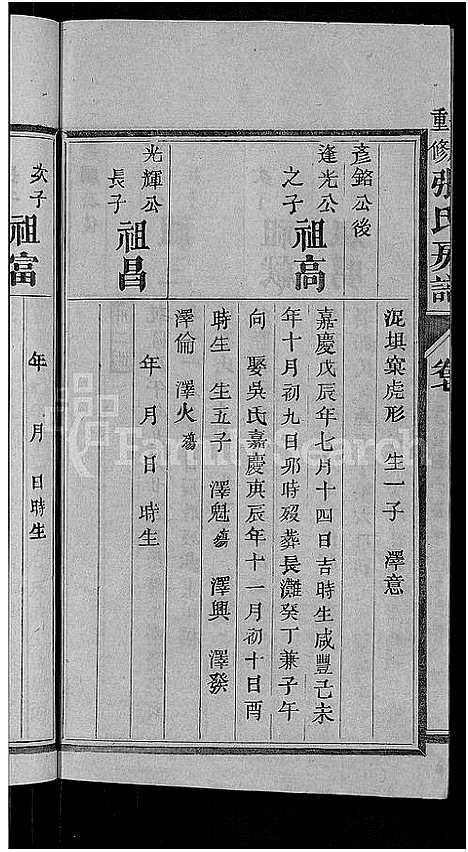 重修張氏房譜
卷
泥垻窠虎形 生一子 澤意
彥鉻公後
逢光公之子 祖高
嘉慶戊辰年七月十四日吉時生咸豐己未
年十月初九日卯時歿葬長灘癸丁兼子午
向 娶吳氏嘉慶庚辰年十一月初十日酉
時生 生五子 澤魁殤 澤興 澤發
澤倫 澤火殤
光輝公長子 祖昌
年 月 日 時生
次子 祖富
年 月 日時生
FamilySearch